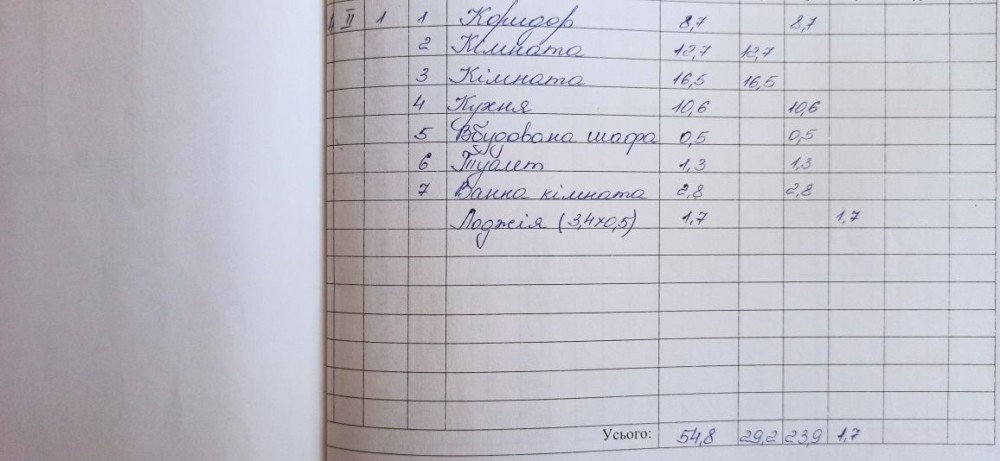 4 ІІ 1 1 Коридор 8,7 8,7
2 Кімната 12,7 12,7
3 Кімната 16,5 16,5
4 Кухня 10,6 10,6
5 Вбудована шафа 0,5 0,5
6 Туалет 1,3 1,3
7 Ванна кімната 2,8 2,8
Лоджія (3,4х0,5) 1,7 1,7
Усього: 54,8 29,2 23,9 1,7